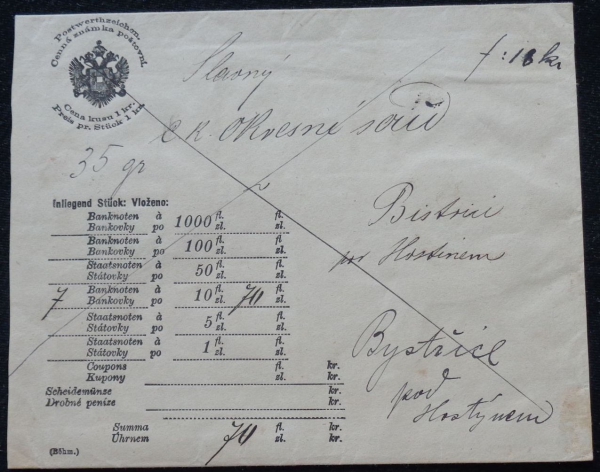 Postwerthzeichen.
Cenná známka poštovní.
Cena kusu 1 kr.
Preis pr. Stück 1 kr.
7:18 kr
Slavný
c k okresné soud
35 gr
Bistrici
pod Hostinem
Inliegend Stück: Vloženo:
Banknoten à fl. fl.
Bankovky po 1000 zl. zl.
Banknoten à fl. fl.
Bankovky po 100 zl. zl.
Staatsnoten à fl. fl.
Státovky po 50 zl. zl.
7 Banknoten à fl. 70 fl.
Bankovky po 10 zl. zl.
Staatsnoten à fl. fl.
Státovky po 5 zl. zl.
Staatsnoten à fl. fl.
Státovky po 1 zl. zl.
Coupons fl. kr.
Kupony zl. kr.
Scheidemünze fl. kr.
Drobné peníze zl. kr.
Summa fl. kr.
Úhrnem 70 zl. kr.
(Böhm.)
Bystřice
pod
Hostýnem